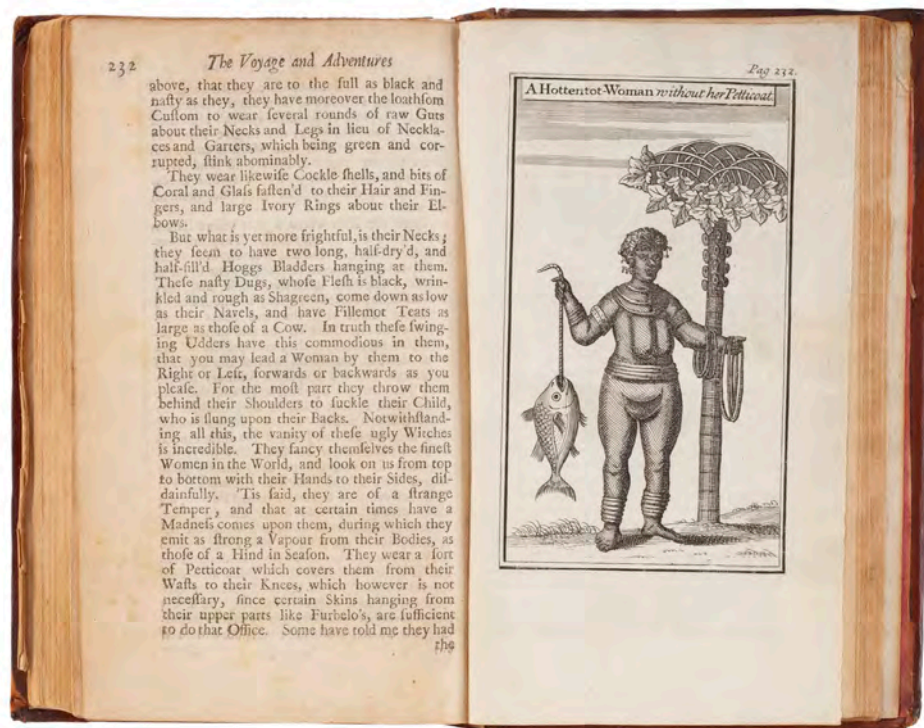 232 The Voyage and Adventures
above, that they are to the full as black and
naſty as they, they have moreover the loathſom
Cuſtom to wear ſeveral rounds of raw Guts
about their Necks and Legs in lieu of Neckla-
ces and Garters, which being green and cor-
rupted, ſtink abominably.
They wear likewiſe Cockle ſhells, and bits of
Coral and Glaſs faſten'd to their Hair and Fin-
gers, and large Ivory Rings about their El-
bows.
But what is yet more frightful, is their Necks;
they ſeem to have two long, half-dry'd, and
half-fill'd Hoggs Bladders hanging at them.
Theſe naſty Dugs, whoſe Fleſh is black, wrin-
kled and rough as Shagreen, come down as low
as their Navels, and have Fillemot Teats as
large as thoſe of a Cow. In truth theſe ſwing-
ing Udders have this commodious in them,
that you may lead a Woman by them to the
Right or Left, forwards or backwards as you
pleaſe. For the moſt part they throw them
behind their Shoulders to ſuckle their Child,
who is ſlung upon their Backs. Notwithſtand-
ing all this, the vanity of theſe ugly Witches
is incredible. They fancy themſelves the fineſt
Women in the World, and look on us from top
to bottom with their Hands to their Sides, diſ-
dainfully. 'Tis ſaid, they are of a ſtrange
Temper, and that at certain times have a
Madneſs comes upon them, during which they
emit as ſtrong a Vapour from their Bodies, as
thoſe of a Hind in Seaſon. They wear a ſort
of Petticoat which covers them from their
Waſts to their Knees, which however is not
neceſſary, ſince certain Skins hanging from
their upper parts like Furbelo's, are ſufficient
to do that Office. Some have told me they had
the
Pag 232.
A Hottentot-Woman without her Petticoat.